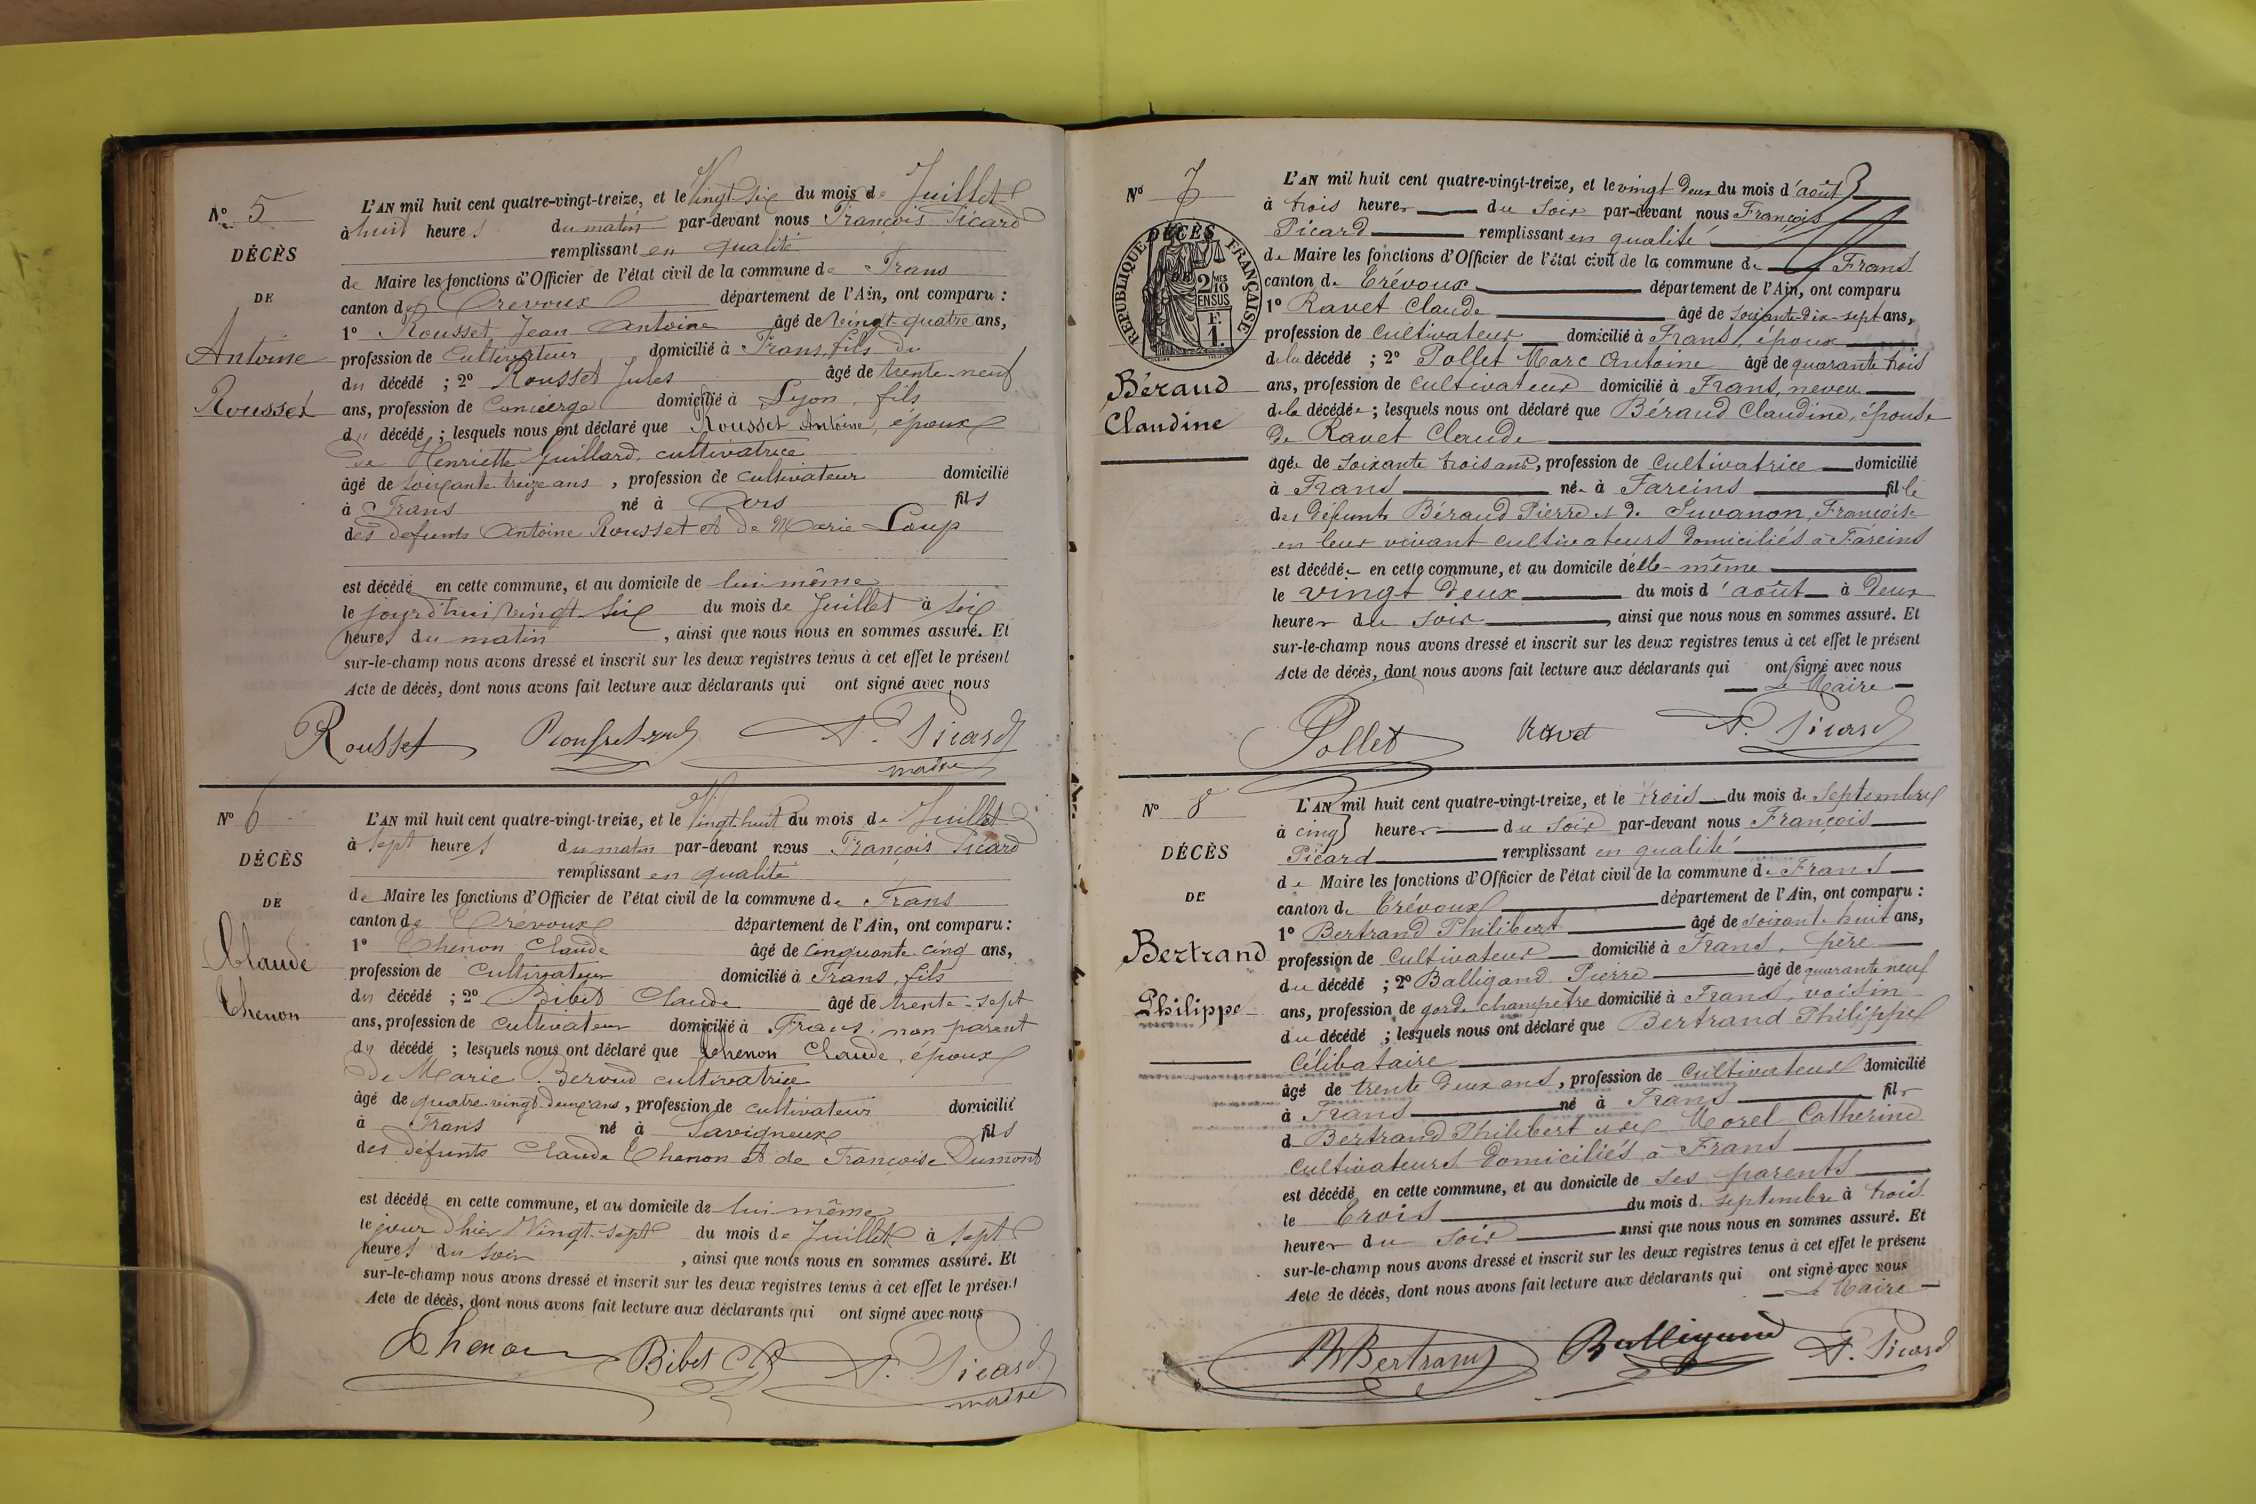 Nº 5
DÉCÈS
DE
Antoine
Rousset
L'AN mil huit cent quatre-vingt-treize, et le Vingt six du mois de Juillet
à huit heures du matin par-devant nous François Picard
remplissant en qualité
de Maire les fonctions d'Officier de l'état civil de la commune de Frans
canton de Trévoux département de l'Ain, ont comparu :
1º Rousset Jean Antoine âgé de vingt-quatre ans,
profession de Cultivateur domicilié à Frans, fils du
du décédé ; 2º Rousset Jules âgé de trente-neuf
ans, profession de Concierge domicilié à Lyon, fils
du décédé ; lesquels nous ont déclaré que Rousset Antoine, époux
de Henriette Guillard, cultivatrice
âgé de soixante treize ans, profession de cultivateur domicilié
à Frans né à Cors fils
des défunts Antoine Rousset et de Marie Loup
est décédé en cette commune, et au domicile de lui même
le jourd'hui vingt-six du mois de Juillet à six
heures du matin, ainsi que nous nous en sommes assuré. Et
sur-le-champ nous avons dressé et inscrit sur les deux registres tenus à cet effet le présent
Acte de décès, dont nous avons fait lecture aux déclarants qui ont signé avec nous
Rousset F. Picard
maire
Nº 6
DÉCÈS
DE
Claude
Chenon
L'AN mil huit cent quatre-vingt-treize, et le Vingt-huit du mois de Juillet
à sept heures du matin par-devant nous François Picard
remplissant en qualité
de Maire les fonctions d'Officier de l'état civil de la commune de Frans
canton de Trévoux département de l'Ain, ont comparu :
1º Chenon Claude âgé de cinquante cinq ans,
profession de cultivateur domicilié à Frans, fils
du décédé ; 2º Bibet Claude âgé de trente-sept
ans, profession de cultivateur domicilié à Frans, non parent
du décédé ; lesquels nous ont déclaré que Chenon Claude, époux
de Marie Beroud cultivatrice
âgé de quatre-vingt-deux ans, profession de cultivateur domicilié
à Frans né à Savigneux fils
des défunts Claude Chenon et de Françoise Dumont
est décédé en cette commune, et au domicile de lui même
le jour d'hier Vingt-sept du mois de Juillet à sept
heures du soir, ainsi que nous nous en sommes assuré. Et
sur-le-champ nous avons dressé et inscrit sur les deux registres tenus à cet effet le présent
Acte de décès, dont nous avons fait lecture aux déclarants qui ont signé avec nous
Chenon Bibet C F. Picard
maire
Nº 7
DÉCÈS
RÉPUBLIQUE FRANÇAISE
2/10 MES
EN SUS
F.
1.
Béraud
Claudine
L'AN mil huit cent quatre-vingt-treize, et le vingt deux du mois d'août
à trois heures du soir par-devant nous François
Picard remplissant en qualité
de Maire les fonctions d'Officier de l'état civil de la commune de Frans
canton de Trévoux département de l'Ain, ont comparu
1º Ravet Claude âgé de soixante-dix-sept ans,
profession de cultivateur domicilié à Frans, époux
de la décédé ; 2º Pollet Marc Antoine âgé de quarante trois
ans, profession de cultivateur domicilié à Frans, neveu
de la décédée ; lesquels nous ont déclaré que Béraud Claudine, épouse
de Ravet Claude
âgée de soixante trois ans, profession de cultivatrice domicilié
à Frans née à Fareins fille
des défunts Béraud Pierre et de Suvanon, Françoise
en leur vivant cultivateurs domiciliés à Fareins
est décédée en cette commune, et au domicile d'elle-même
le vingt deux du mois d'août à deux
heures du soir, ainsi que nous nous en sommes assuré. Et
sur-le-champ nous avons dressé et inscrit sur les deux registres tenus à cet effet le présent
Acte de décès, dont nous avons fait lecture aux déclarants qui ont signé avec nous
Le Maire
Pollet Ravet F. Picard
Nº 8
DÉCÈS
DE
Bertrand
Philippe
L'AN mil huit cent quatre-vingt-treize, et le trois du mois de Septembre
à cinq heures du soir par-devant nous François
Picard remplissant en qualité
de Maire les fonctions d'Officier de l'état civil de la commune de Frans
canton de Trévoux département de l'Ain, ont comparu :
1º Bertrand Philibert âgé de soixante huit ans,
profession de Cultivateur domicilié à Frans, père
du décédé ; 2º Balligand Pierre âgé de quarante neuf
ans, profession de garde champêtre domicilié à Frans, voisin
du décédé ; lesquels nous ont déclaré que Bertrand Philippe
Célibataire
âgé de trente deux ans, profession de Cultivateur domicilié
à Frans né à Frans fils
d Bertrand Philibert et de Morel Catherine
cultivateurs domiciliés à Frans
est décédé en cette commune, et au domicile de ses parents
le trois du mois de septembre à trois
heures du soir ainsi que nous nous en sommes assuré. Et
sur-le-champ nous avons dressé et inscrit sur les deux registres tenus à cet effet le présent
Acte de décès, dont nous avons fait lecture aux déclarants qui ont signé avec nous
Le Maire
Bertrand Balligand F. Picard